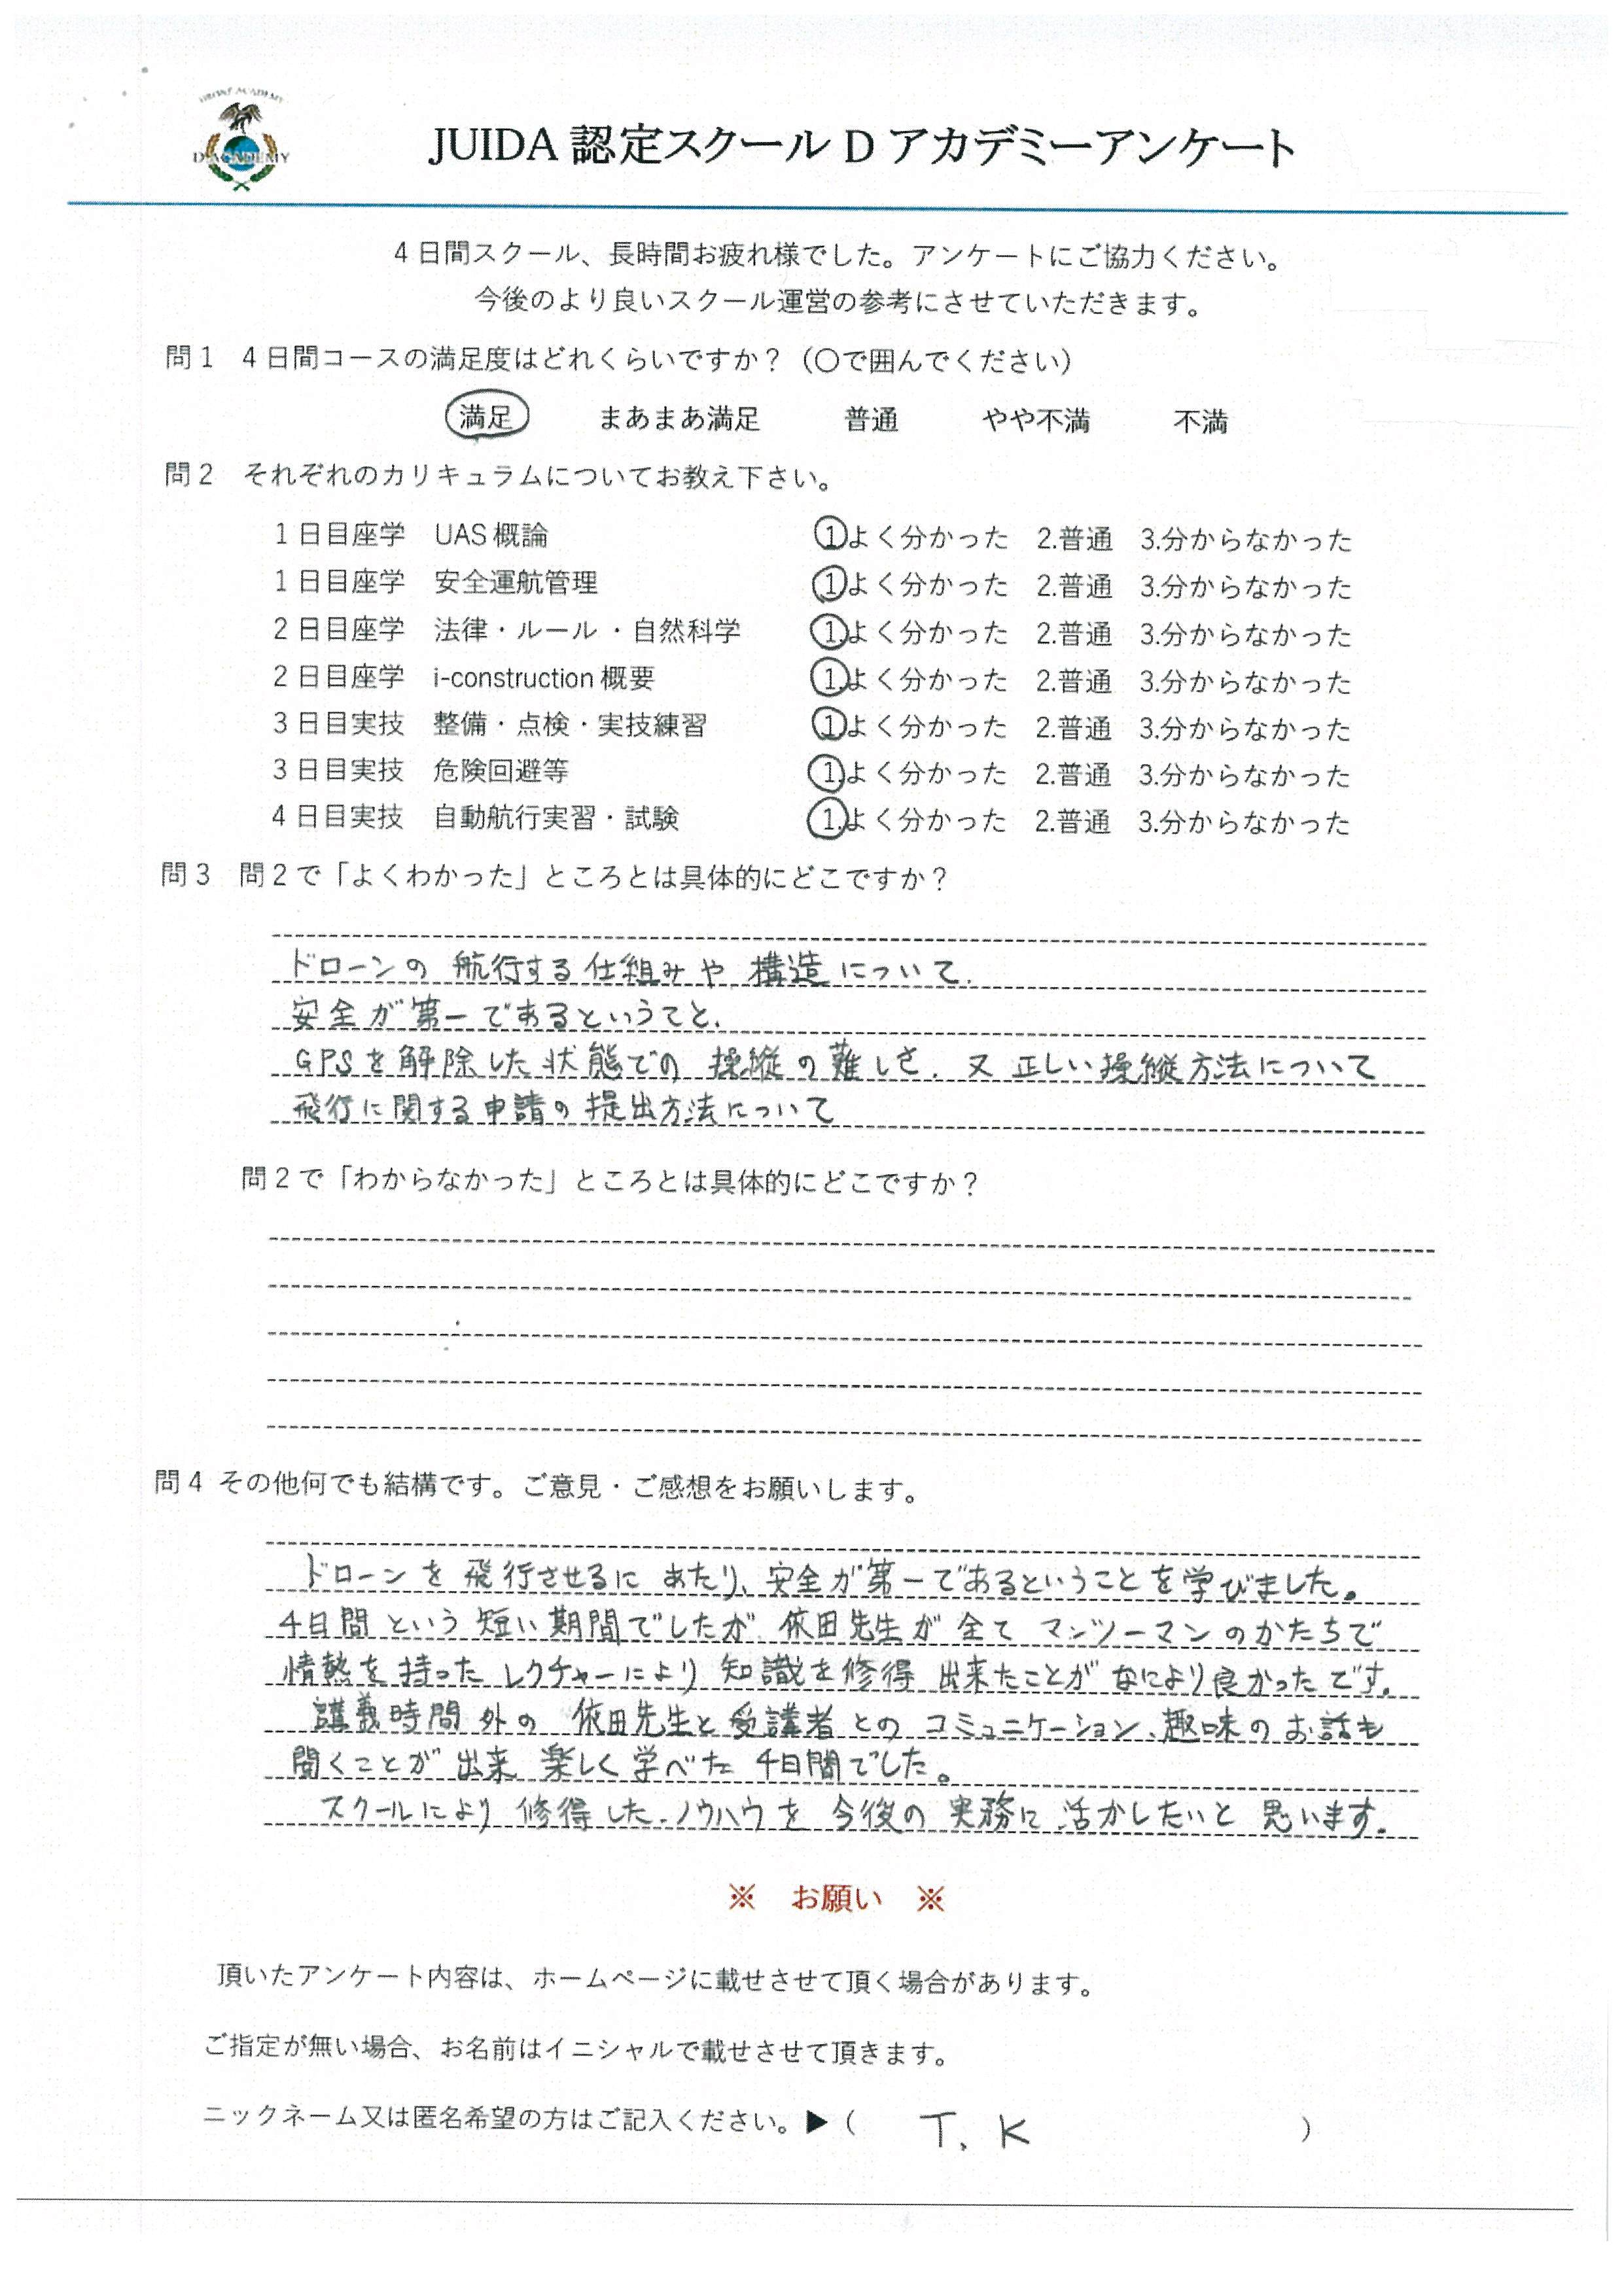 DRONE ACADEMY
D ACADEMY
JUIDA 認定スクール D アカデミーアンケート
4 日間スクール、長時間お疲れ様でした。アンケートにご協力ください。
今後のより良いスクール運営の参考にさせていただきます。
問1 4 日間コースの満足度はどれくらいですか？（〇で囲んでください）
満足 まあまあ満足 普通 やや不満 不満
問2 それぞれのカリキュラムについてお教え下さい。
1 日目座学 UAS 概論 1.よく分かった 2.普通 3.分からなかった
1 日目座学 安全運航管理 1.よく分かった 2.普通 3.分からなかった
2 日目座学 法律・ルール・自然科学 1.よく分かった 2.普通 3.分からなかった
2 日目座学 i-construction 概要 1.よく分かった 2.普通 3.分からなかった
3 日目実技 整備・点検・実技練習 1.よく分かった 2.普通 3.分からなかった
3 日目実技 危険回避等 1.よく分かった 2.普通 3.分からなかった
4 日目実技 自動航行実習・試験 1.よく分かった 2.普通 3.分からなかった
問3 問2で「よくわかった」ところとは具体的にどこですか？
ドローンの 航行する仕組みや 構造について.
安全が第一であるということ.
GPSを解除した状態での 操縦の難しさ. 又 正しい操縦方法について
飛行に関する申請の提出方法について
問2で「わからなかった」ところとは具体的にどこですか？
問4 その他何でも結構です。ご意見・ご感想をお願いします。
ドローンを飛行させるに あたり、安全が第一であるということを学びました。
4日間という 短い期間でしたが 依田先生が 全て マンツーマンのかたちで
情熱を持ったレクチャーにより 知識を修得 出来たことが なにより良かったです.
講義時間外の 依田先生と受講者との コミュニケーション、趣味のお話も
聞くことが 出来 楽しく学べた 4日間でした。
スクールにより 修得した.ノウハウを 今後の 実務に 活かしたいと 思います.
※ お願い ※
頂いたアンケート内容は、ホームページに載せさせて頂く場合があります。
ご指定が無い場合、お名前はイニシャルで載せさせて頂きます。
ニックネーム又は匿名希望の方はご記入ください。▶（ T. K ）